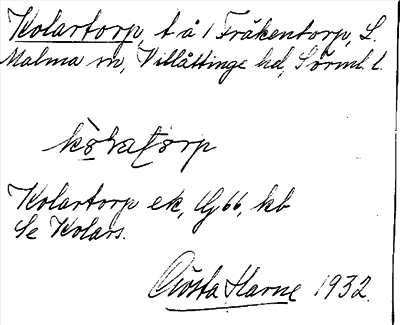 Kolartorp, t å 1 Fräkentorp, L.
Malma sn, Villåttinge hd, Sörml. l.
Kolartorp ek, G 66, kb
Se Kolars.
Gösta Harne 1932.